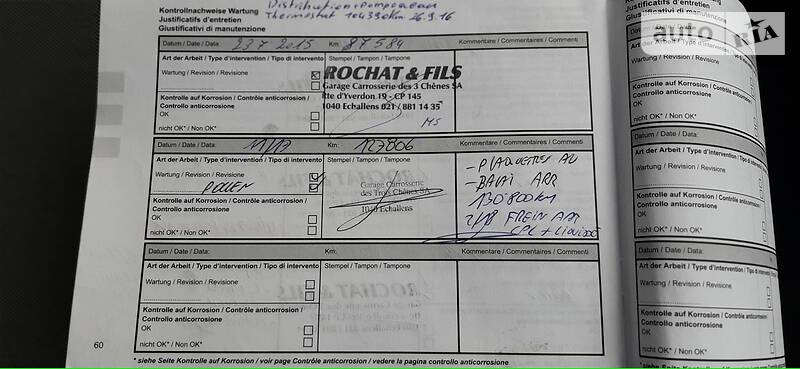 Kontrollnachweise Wartung
Justificatifs d'entretien
Giustificativi di manutenzione
Distribution + Pompe à eau
Thermostat 104390km 26.9.16
Datum / Date / Data: 23 7 2015 Km: 87584 Kommentar / Commentaires / Commenti
Art der Arbeit / Type d'intervention / Tipo di intervento
Stempel / Tampon / Tampone
Wartung / Revision / Revisione
ROCHAT & FILS
Garage Carrosserie des 3 Chênes SA
Rte d'Yverdon 19 - CP 145
1040 Echallens 021 / 881 14 35
Kontrolle auf Korrosion / Contrôle anticorrosion /
Controllo anticorrosione
OK
nicht OK* / Non OK*
Datum / Date / Data: Km: 127806 Kommentare / Commentaires / Commenti
Art der Arbeit / Type d'intervention / Tipo di intervento
Stempel / Tampon / Tampone
Wartung / Revision / Revisione
POLLEN
Garage Carrosserie
des Trois Chênes SA
1040 Echallens
- PLAQUETTES AV
- BALAI ARR
130'800km
2/18 FREIN ARR
CPL + LIQUIDE
Kontrolle auf Korrosion / Contrôle anticorrosion /
Controllo anticorrosione
OK
nicht OK* / Non OK*
Datum / Date / Data: Km: Kommentar / Commentaires / Commenti
Art der Arbeit / Type d'intervention / Tipo di intervento
Stempel / Tampon / Tampone
Wartung / Revision / Revisione
Kontrolle auf Korrosion / Contrôle anticorrosion /
Controllo anticorrosione
OK
nicht OK* / Non OK*
60
* siehe Seite Kontrolle auf Korrosion / voir page Contrôle anticorrosion / vedere la pagina controllo anticorrosione
Justificatifs d'entretien
Giustificativi di manutenzione
auto RIA
Datum / Date / Data:
Art der Arbeit / Type d'intervention
Wartung / Revision / Revisione
Kontrolle auf Korrosion / Contrôle
Controllo anticorrosione
OK
nicht OK* / Non OK*
Datum / Date / Data:
Art der Arbeit / Type d'intervention
Wartung / Revision / Revisione
Kontrolle auf Korrosion / Contrôle
Controllo anticorrosione
OK
nicht OK* / Non OK*
Datum / Date / Data:
Art der Arbeit / Type d'intervention
Wartung / Revision / Revisione
Kontrolle auf Korrosion / Contrôle
Controllo anticorrosione
OK
nicht OK* / Non OK*
* siehe Seite Kontrolle auf